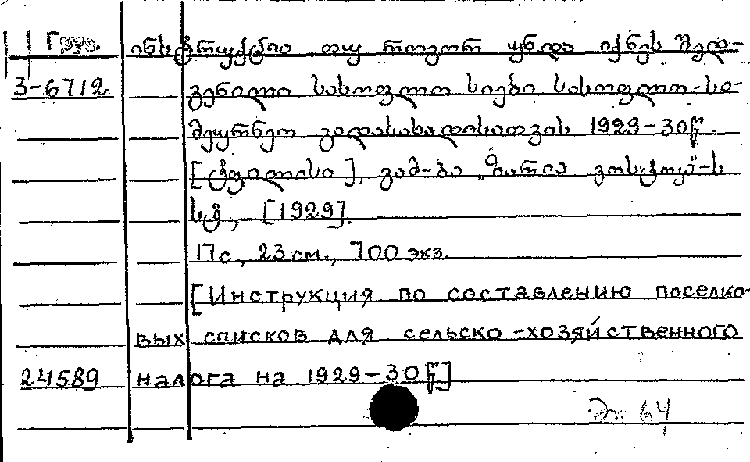 Груз. ინსტრუქცია თუ როგორ უნდა იქნეს შედ-
3-6712 გენილი სასოფლო სიები სასოფლო-სა-
მეურნეო გადასახადისათვის 1929-30წ.
[ტფილისი], გამ-ბა
ს.გ., [1929].
17 с., 23 см., 700 экз.
[Инструкция по составлению поселко-
вых списков для сельско-хозяйственного
24589 налога на 1929-30 г]
64